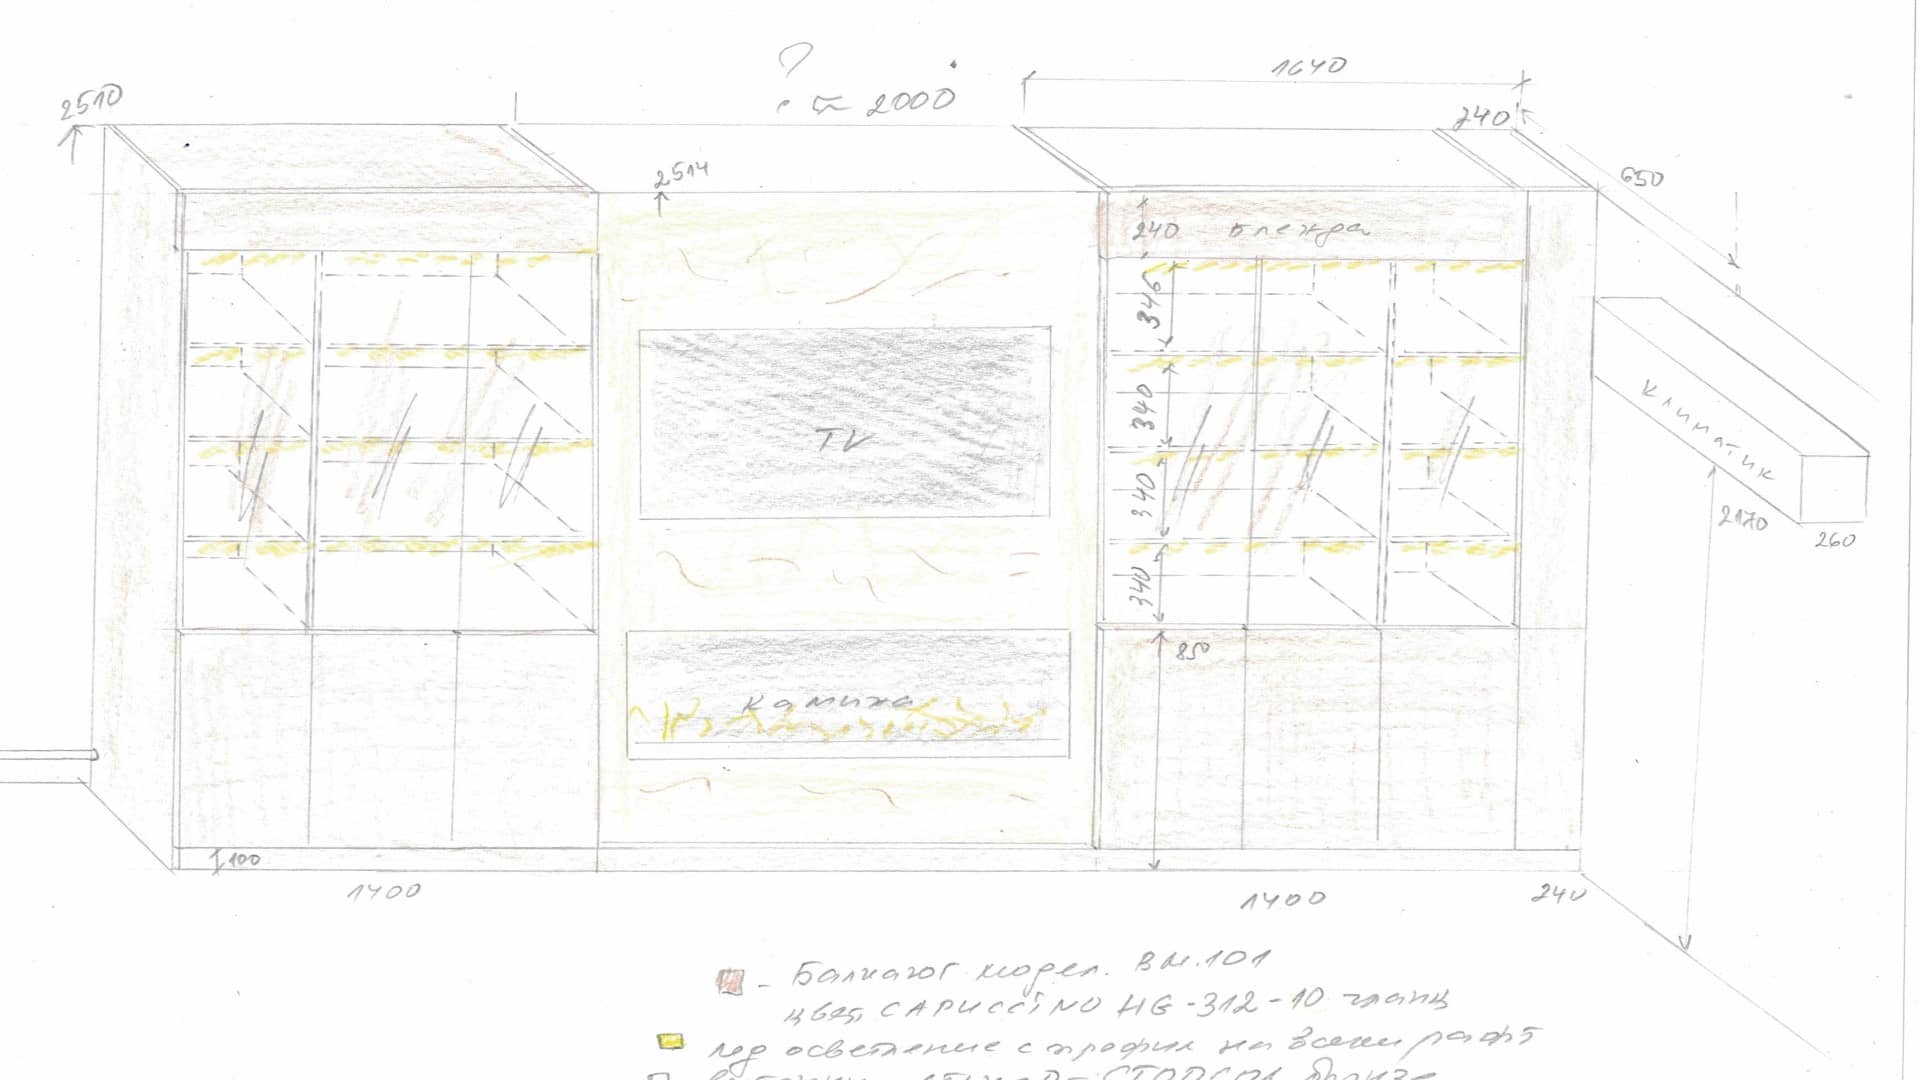 ?
≈ 2000
1640
2510
240
2514
650
240 блежда
346
340
340
340
TV
Климатик
2170
260
850
камина
100
1400
1400
240
- Балкагог модел. ВМ.101
цвят CAPUCCINO HG-312-10 гланц
лед осветление с профил на всеки рафт
СТОПСОЛ бронзе